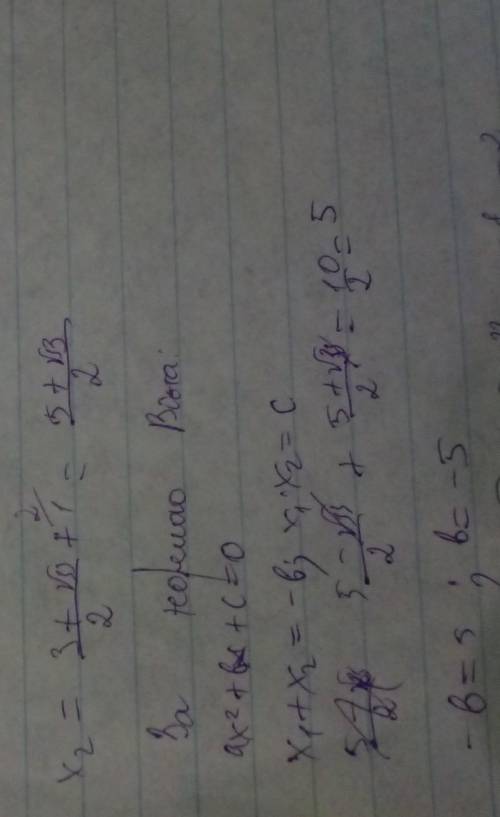 x₂ = (3+√13)/2 + 1² = (5+√13)/2
За теоремою Вієта:
ax²+bx+c=0
x₁+x₂ = -b; x₁·x₂ = c
(5-√13)/2 + (5+√13)/2 = 10/2 = 5
-b = 5; b = -5